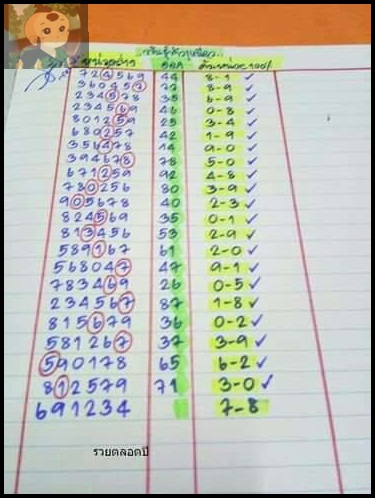 724569 44 8-1 ✓
360457 77 8-9 ✓
234578 35 6-9 ✓
234569 46 0-8 ✓
801259 25 3-4 ✓
680257 42 1-9 ✓
356478 14 9-0 ✓
394678 78 5-0 ✓
671259 92 4-8 ✓
780256 80 3-9 ✓
905678 40 2-3 ✓
824569 35 0-1 ✓
813456 53 2-9 ✓
589167 61 2-0 ✓
568047 47 9-1 ✓
783469 26 0-5 ✓
234567 87 1-8 ✓
815679 36 0-2 ✓
581267 37 3-9 ✓
590178 65 6-2 ✓
812579 71 3-0 ✓
691234 7-8
รวยตลอดปี